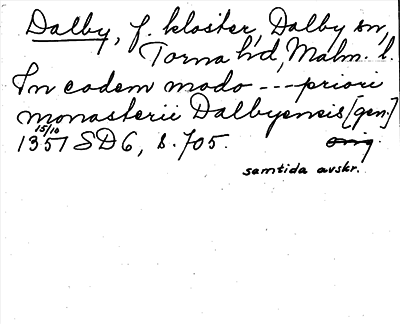 Dalby, f. kloster, Dalby sn,
Torna hd, Malm. l.
In eodem modo --- priori
monasterii Dalbyensis [gen.]
15/10
1351 SD6, s. 705. orig.
samtida avskr.